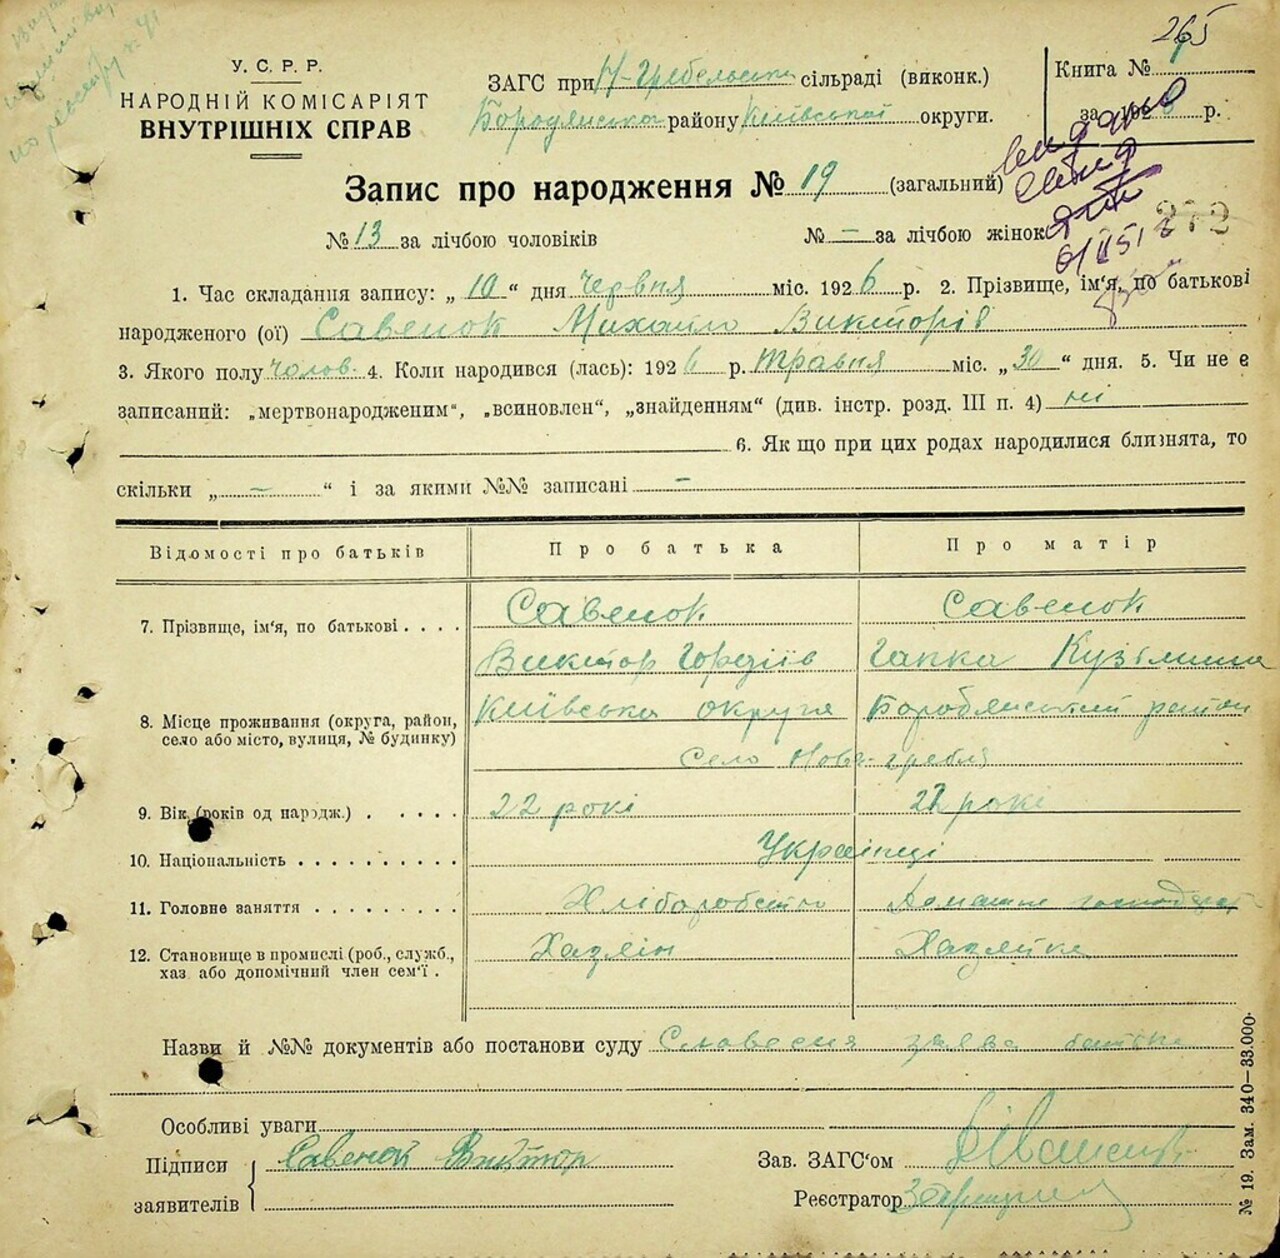 265
У. С. Р. Р.
НАРОДНІЙ КОМІСАРІЯТ
ВНУТРІШНІХ СПРАВ
ЗАГС при Н-Гребельськ сільраді (виконк.)
Бородянська району Київської округи.
Книга №
за 192 р.
видано
Запис про народження № 19 (загальний)
№ 13 за лічбою чоловіків № — за лічбою жінок
272
1. Час складання запису: „ 10 “ дня Червня міс. 1926 р. 2. Прізвище, ім'я, по батькові
народженого (ої) Савенок Михайло Викторів
3. Якого полу чолов. 4. Коли народився (лась): 1926 р. Травня міс. „ 30 “ дня. 5. Чи не є
записаний: „мертвонародженим“, „всиновлен“, „знайденням“ (див. інстр. розд. III п. 4) ні
6. Як що при цих родах народилися близнята, то
скільки „ — “ і за якими №№ записані —
Відомості про батьків Про батька Про матір
7. Прізвище, ім'я, по батькові . . . . Савенок Савенок
Виктор Гордіїв Гапка Кузьминш
8. Місце проживання (округа, район, село або місто, вулиця, № будинку) Київська округа Бородянський район
Село Нова-гребля
9. Вік (років од народж.) . . . . . 22 рокі 22 рокі
10. Національність . . . . . . . . . . Українці
11. Головне заняття . . . . . . . . . Хліборобство Домашне господар
12. Становище в промислі (роб., служб., хаз або допомічний член сем'ї . Хазяін Хазяйка
Назви й №№ документів або постанови суду Словесня заява батька
Особливі уваги
Підписи Савенок Виктор Зав. ЗАГС'ом
заявителів Реєстратор
№ 19. Зам. 340—33.000.